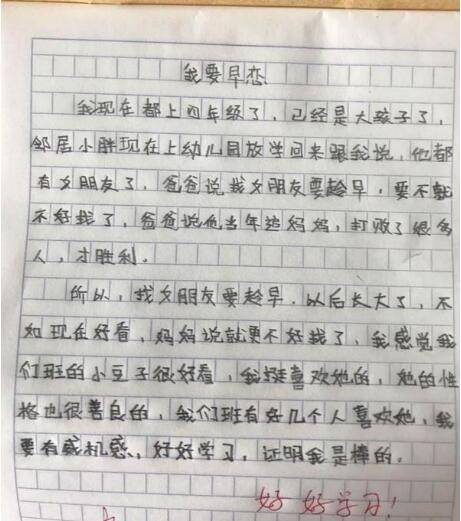 我要早恋
我现在都上四年级了，已经是大孩子了，
邻居小胖现在上幼儿园放学回来跟我说，他都
有女朋友了，爸爸说找女朋友要趁早，要不就
不好找了，爸爸说他当年追妈妈，打败了很多
人，才胜利。
所以，找女朋友要趁早．以后长大了，不
如现在好看，妈妈说就更不好找了，我感觉我
们班的小豆子很好看，我挺喜欢她的，她的性
格也很善良的，我们班有好几个人喜欢她，我
要有感机感，好好学习，证明我是棒的。
好好学习！